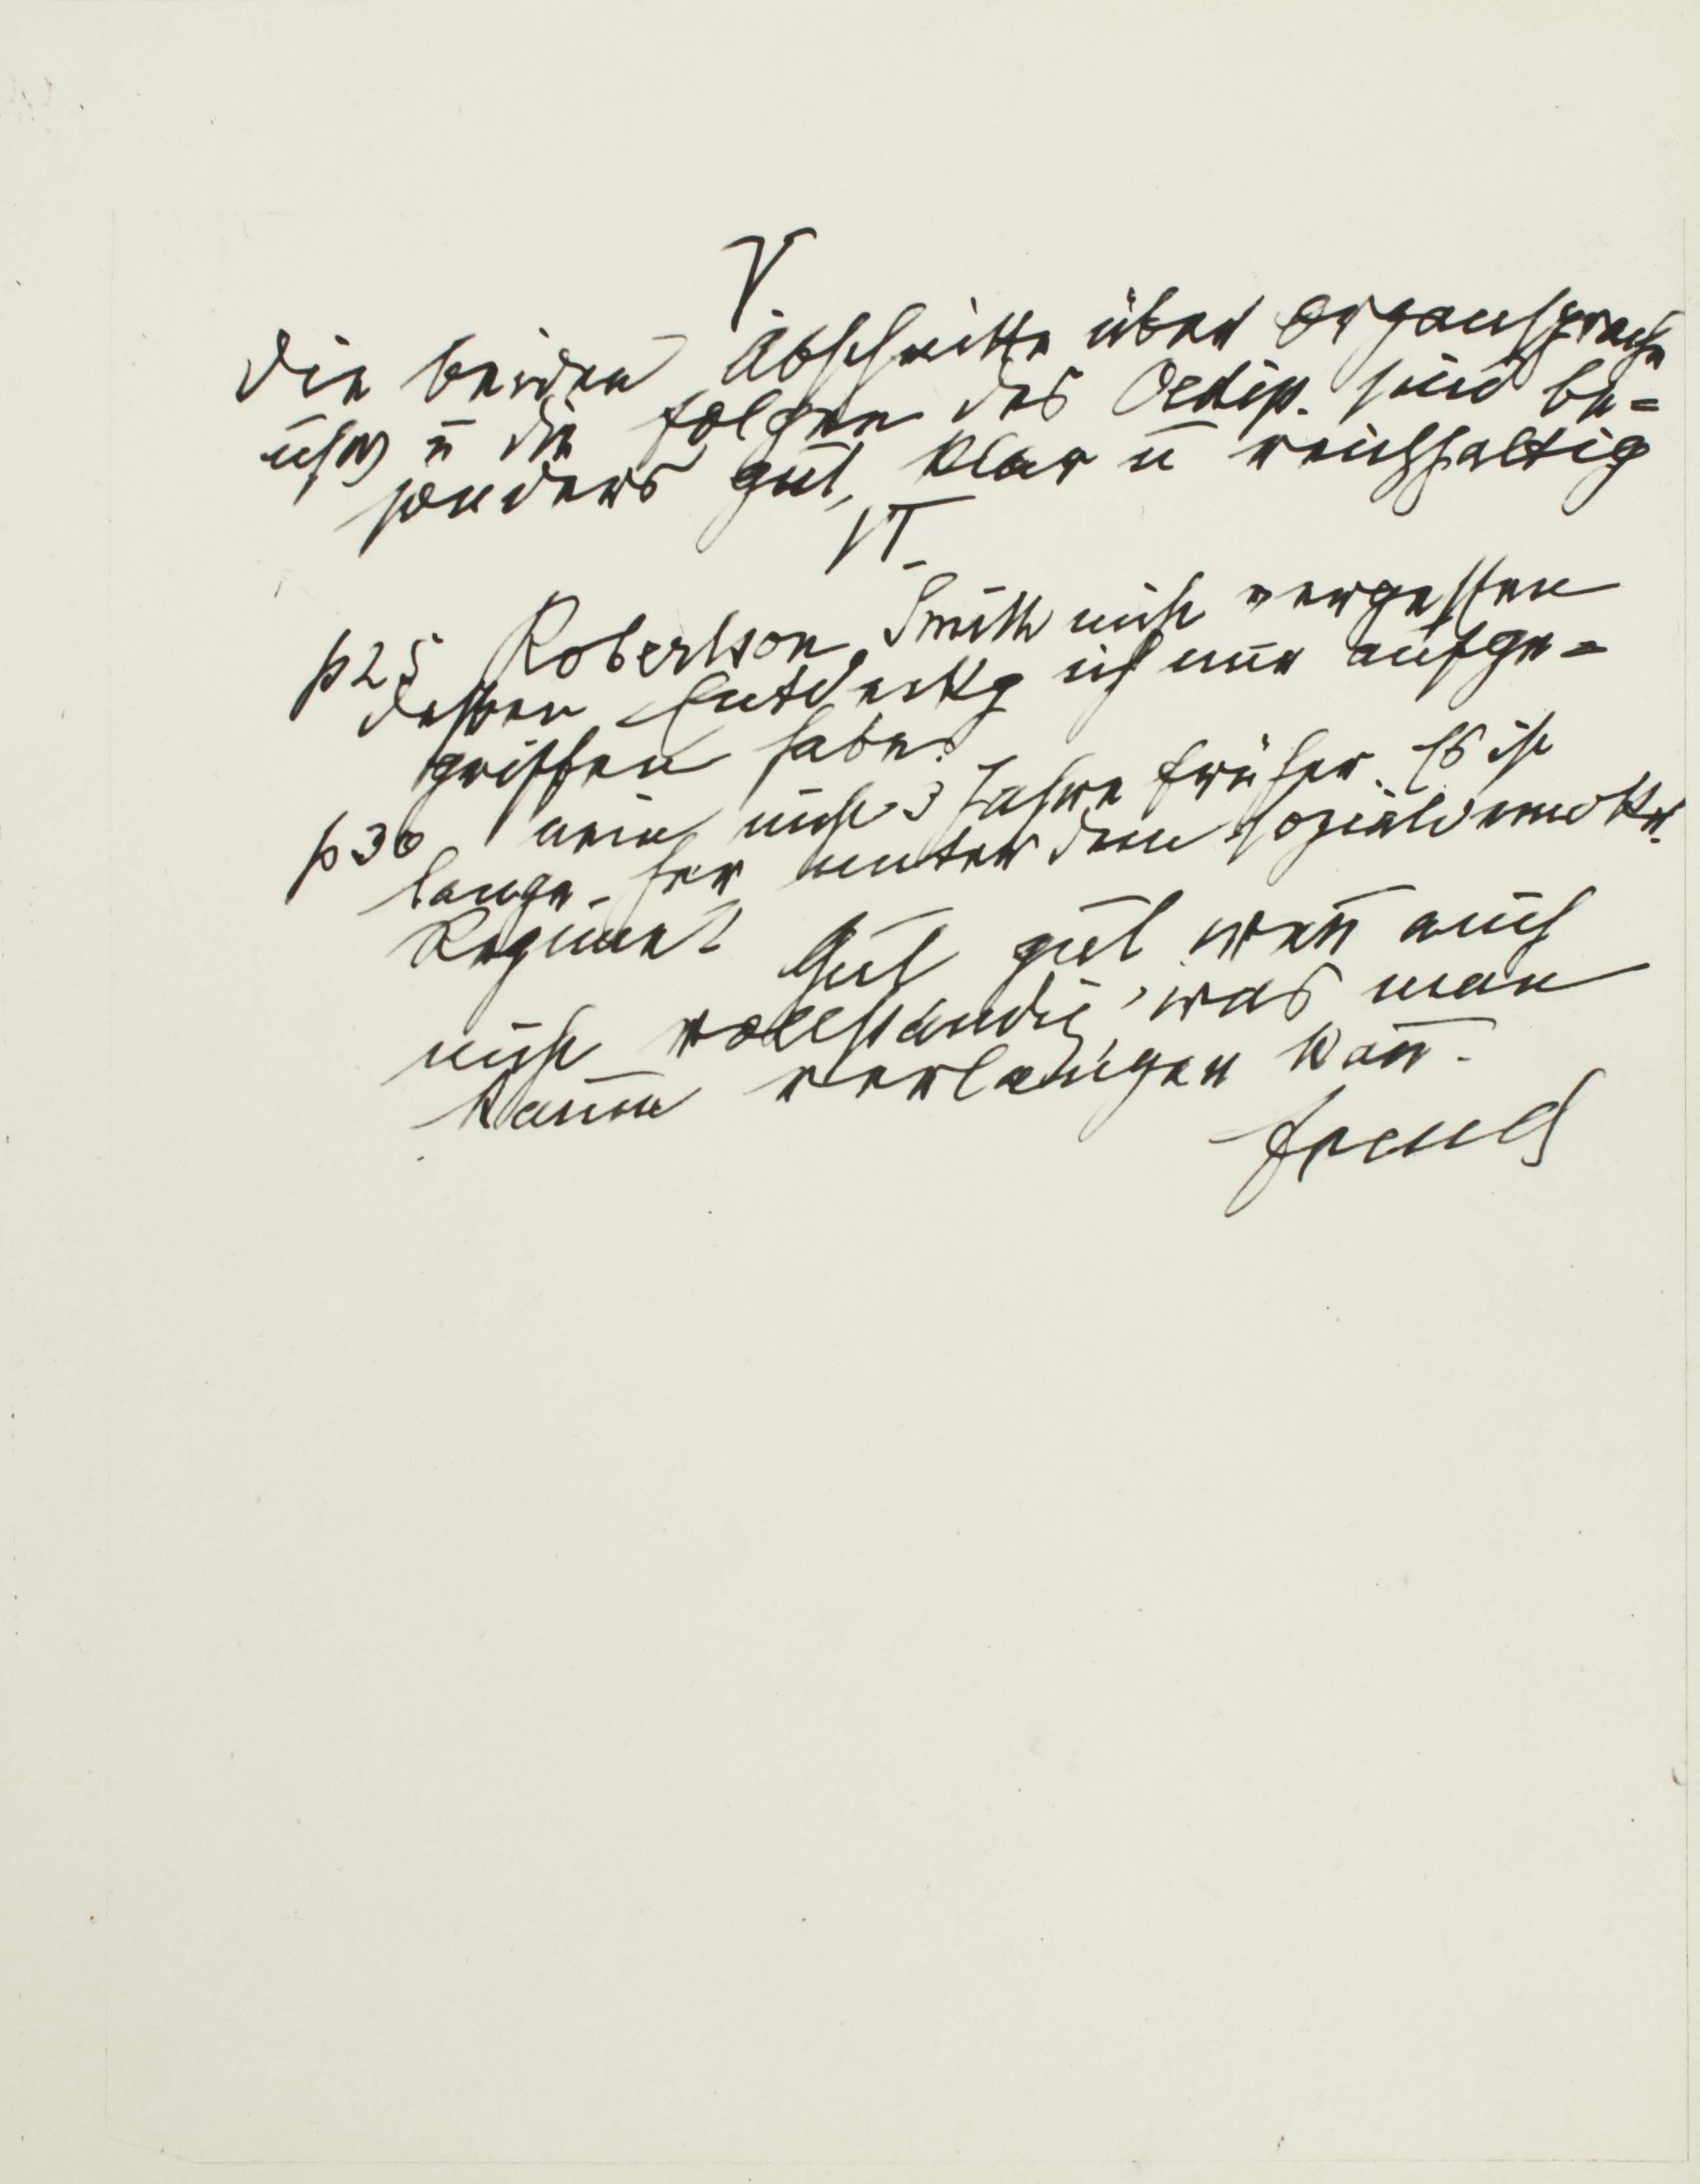 V
Die beiden Abschnitte über Organsprache
usw u die Folgen des Oedip. sind be=
sonders gut, klar u reichhaltig
VI.
p 25 Robertson Smith nicht vergessen
dessen Entdeckg ich nur aufge=
griffen habe.
p 30 nein nicht 3 Jahre früher. Es ist
lange her unter dem sozialdemokr.
Regime!
Gut gut wen̅ auch
nicht vollständig, was man
kaum verlangen kan̅.
Freud